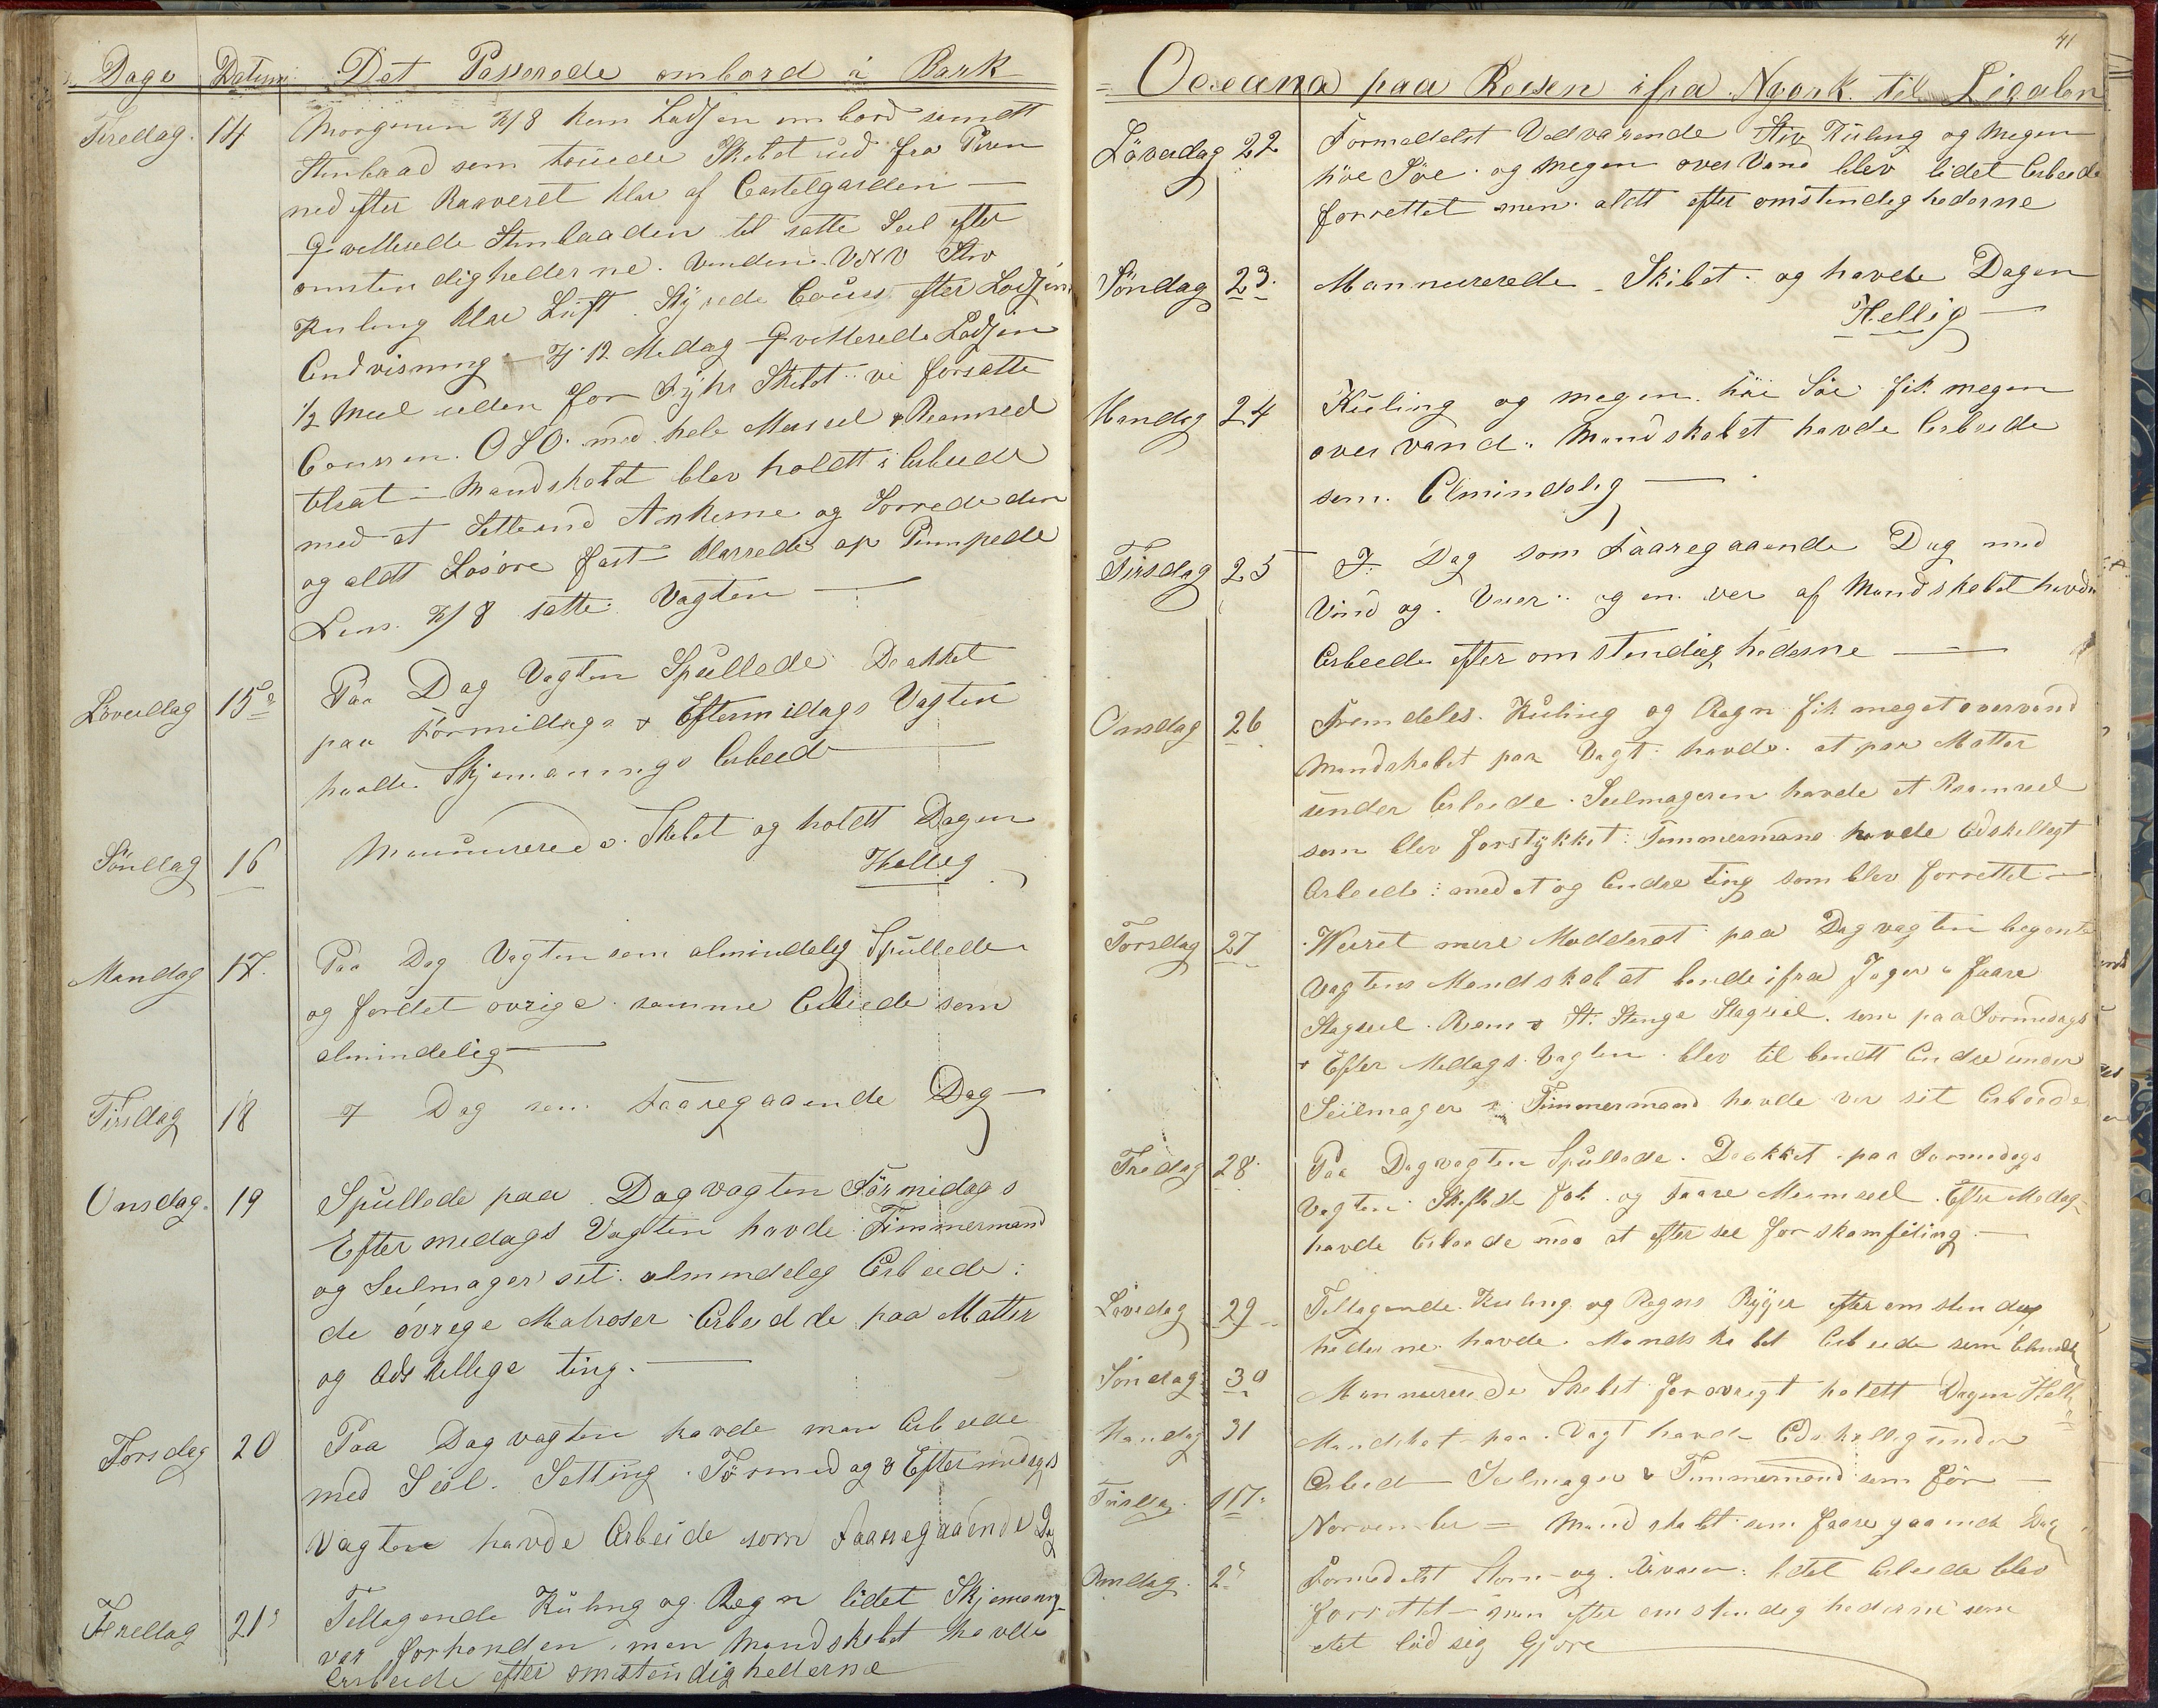 Dage Datum Det Passerede ombord i Bark
Fredag. 14 Morgenen Kl 8 kom Lodsen ombord samdt
Stmbaad som touede Skibet ud fra Piren
ned efter Raaveret klar af Castelgarden —
Qvitterede Stmbaaden til satte Seil efter
omstendighederne. Vinden VNV Stiv
Kuling klar Luft. Styrede Couss efter Lodsens
Andvisning — Kl 12 Medag Qvitterede Lodsen
1/2 Meil uden for Fyhr Skibet vi forsatte
Coursen OSO med hele Mersseil & Bramseil
tilsat — Mandskabet blev holdt i Arbeide
med at Sette ind Ankerne og Sorrede dem
og aldt Losöre fast klarrede op Pumpede
Lens. Kl 8 satte Vagten —
Löverdag 15de Paa Dag Vagten Spullede Dækket
paa Formidags & Eftermidags Vagten
havde Skjemannings Arbeid —
Söndag 16 Mannurerede Skibet og holdt Dagen
Hellig
Mandag 17. Paa Dag Vagten som almindelig Spullede
og fordet ovrige samme Arbeide som
almindelig —
Tirsdag 18 I Dag som Faaregaaende Dag —
Onsdag. 19 Spullede paa Dagvagten Förmidags
Eftermedags Vagten havde Timmermand
og Seilmager sit almindelig Arbeide:
de övrege Matroser Arbeidde paa Matter
og Adskillige ting. —
Torsdag 20 Paa Dagvagten havde man Arbeide
med Seil. Setting. Formidag & Eftermidags
Vagten havde Arbeide som Faaregaaende Dag
Fredag 21de Teltagende Kuling og Regn lidet Skjemaning
var forhonden, men Mandskabet havde
Arbeide efter omstendighederne
41
Oceana paa Reisen ifra Nyork til Ligalon
Löverdag 22 Formedelst Vedvarende Stiv Kuling og Megen
höe Söe og megen over Vand blev lidet Arbeide
forrettet men aldt efter omstendighederne
Söndag 23. Mannurerede Skibet og havde Dagen
Hellig —
Mandag 24 Kuling og megen höi Söe fik megen
over vand. Mandskabet havde Arbeide
som Almindelig —
Tirsdag 25 I Dag som Faaregaaende Dag med
Vind og Veer og en ver af Mandskabet havde
Arbeide efter omstendighederne —
Onsdag 26 Fremdeles Kuling og Regn fik meget overvand
Mandskabet paa Vagt havde at paa Matter
under Arbeide. Seilmageren havde et Bramseil
som blev forstykket: Timmermand havde Adskilligt
Arbeide: med et og Andre ting som blev forrettet —
Torsdag 27 Veiret mere Modderat paa Dagvagten begente
Vagtens Mandskab at bende ifra Jager & faare
Stagseil. Bram & St. Stenge Stagseil. som paa Formidags
& Efter Medags Vagten blev til bendt Andre under
Seilmager & Timmermand havde ver sit Arbeide
Fredag 28 Paa Dagvagten Spullede Dækket paa Formidags
Vagten Skiftede fok og Faare Mermseil. Efter Medag
havde Arbeide med at efter see for skamfiling —
Löverdag 29 Teltagende Kuling og Regns Byger efter omstendig
hederne havde Mandskabet Arbeide som
Söndag 30 Mannurerede Skibet for ovrigt holdt Dagen Hell
Mandag 31 Mandskabet paa Vagt havde Adskillig under
Arbeid — Seilmager & Timmermand som för —
Tirsdag. 1 Norvember = Mandskabet som faaregaaende Dag
Onsdag. 2de Formedelst Storm og Uveier lidet Arbeide blev
forrettet — men efter omstendighederne som
det lod sig Gjöre —